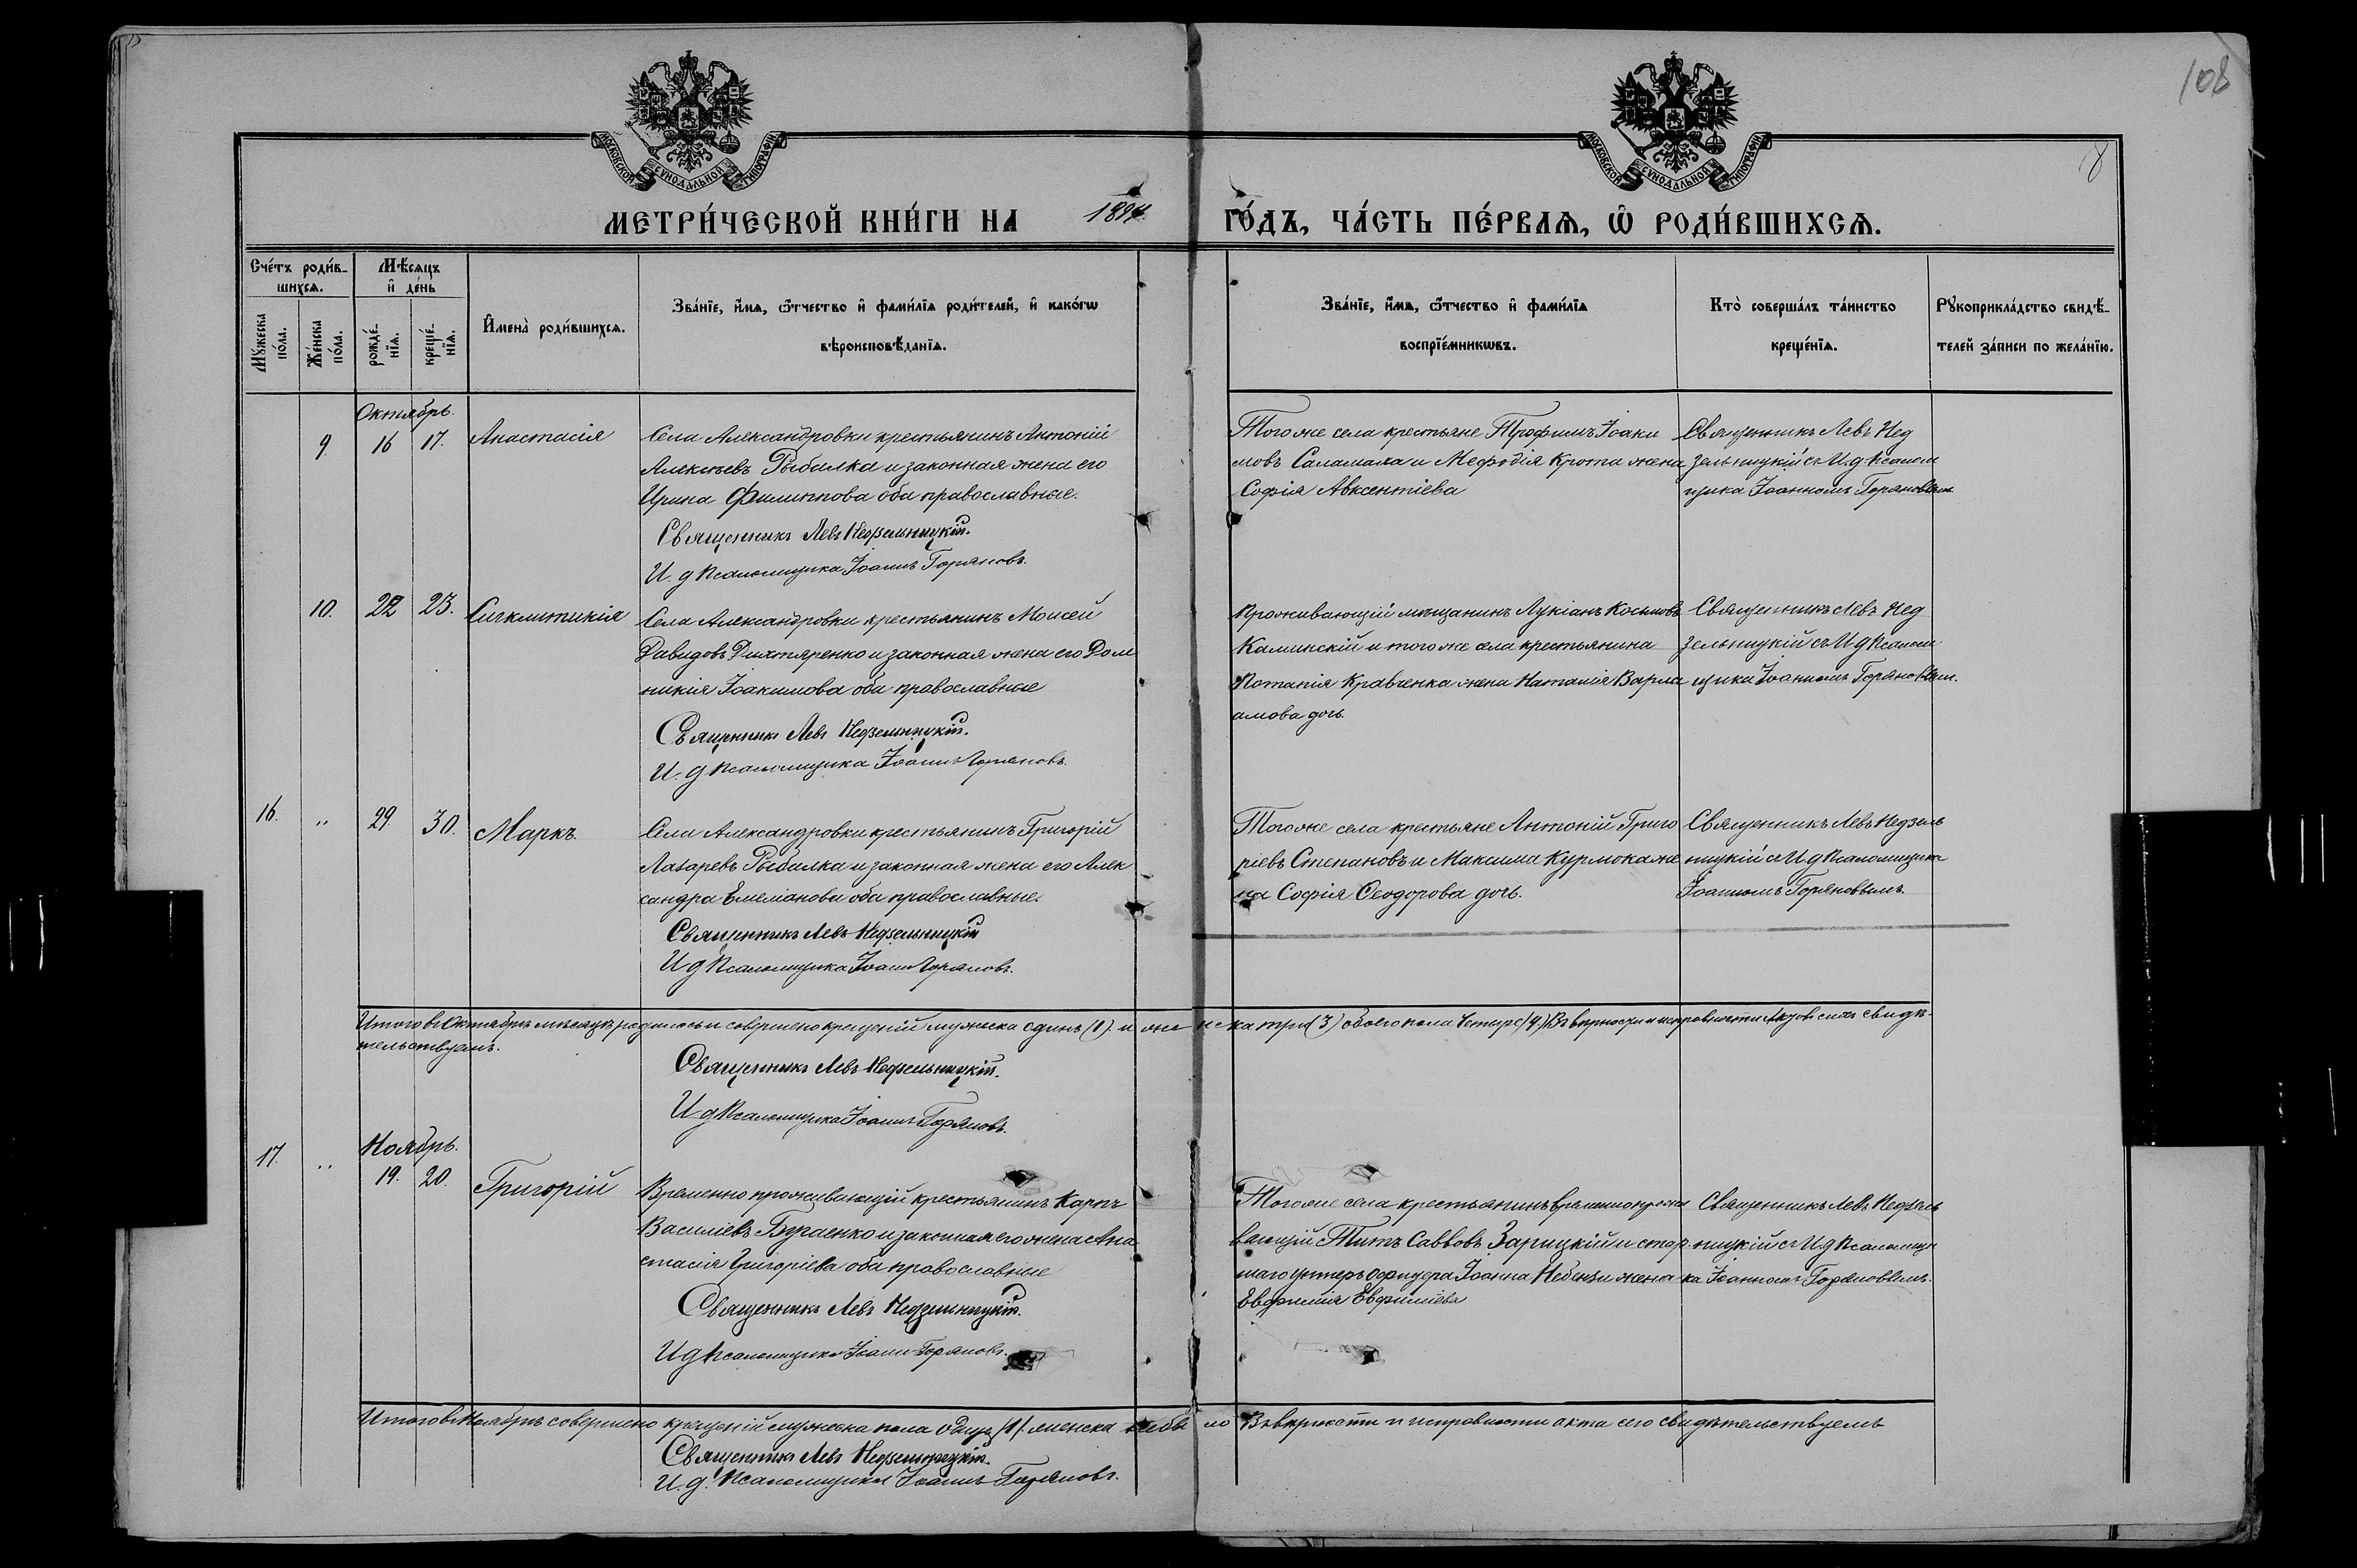 108
8
МОСКОВСКОЙ СѴНОДАЛЬНОЙ ТИПОГРАФІИ
МОСКОВСКОЙ СѴНОДАЛЬНОЙ ТИПОГРАФІИ
МЕТРИ́ЧЕСКОЙ КНИ́ГИ НА 1894 ГО́ДЪ, ЧА́СТЬ ПЕ́РВАѦ, Ѿ РОДИ́ВШИХСѦ.
Сче́тъ роди́в-
шихсѧ.
Мꙋ́жеска
по́ла.
Же́нска
по́ла.
Мѣ́сѧцъ
и҆ де́нь
рожде́-
нїѧ.
креще́-
нїѧ.
И҆мена̀ роди́вшихсѧ.
Зва́нїе, и҆́мѧ, ѻ҆́тчество и҆ фами́лїѧ роди́телей, и҆ како́гѡ
вѣроисповѣ́данїѧ.
Зва́нїе, и҆́мѧ, ѻ҆́тчество и҆ фами́лїѧ
воспрїе́мникѡвъ.
Кто̀ соверша́лъ та́инство
креще́нїѧ.
Рꙋкоприкла́дство свидѣ́-
телей за́писи по жела́нїю.
Октябрь.
9. 16 17. Анастасія
Села Александровки крестьянинъ Антоній
Алексѣевъ Рыбалка и законная жена его
Ирина Филиппова оба православные.
Священникъ Левъ Недзельницкій.
И. д Псаломщика Іоаннъ Горяновъ.
Того же села крестьяне Трофимъ Іоаки
мовъ Саламаха и Мефодія Крота жена
Софія Авксентіева
Священникъ Левъ Нед
зельницкій съ И. д. Псалом
щика Іоанномъ Горяновымъ
10. 22 23. Сигклитикія
Села Александровки крестьянинъ Моисей
Давидовъ Дихтяренко и законная жена его Дом
никія Іоакимова оба православные
Священникъ Левъ Недзельницкій.
И. д Псаломщика Іоаннъ Горяновъ.
Проживающій мѣщанинъ Лукіанъ Косьмовъ
Каминскій и того же села крестьянина
Потапія Кравченка жена Наталія Варла
амова дочь.
Священникъ Левъ Нед
зельницкій съ И д Псалом
щика Іоанномъ Горяновым.
16. " 29. 30. Маркъ.
Села Александровки крестьянинъ Григорій
Лазаревъ Рыбалка и законная жена его Алек
сандра Емеліанова оба православные.
Священникъ Левъ Недзельницкій
И д Псаломщика Іоаннъ Горяновъ.
Того же села крестьяне Антоній Григо
ріевъ Степановъ и Максима Курмока же
на Софія Ѳеодорова дочь.
Священникъ Левъ Недзель
ницкій съ И д Псаломщика
Іоанномъ Горяновымъ.
Итого въ Октябрѣ мѣсяцѣ родилось и совершено крещеній мужеска одинъ (1) и женска три (3) обоего пола четыре (4) Въ вѣрности и исправности актовъ сихъ свидѣ-
тельствуемъ.
Священникъ Левъ Недзельницкій.
И д Псаломщика Іоаннъ Горяновъ.
Ноябрь.
17. " 19. 20. Григорій
Временно проживающій крестьянинъ Карпъ
Василіевъ Бугаенко и законная его жена Ана
стасія Григоріева оба православные
Священникъ Левъ Недзельницкій.
И д Псаломщика Іоаннъ Горяновъ.
Того же села крестьянинъ временно прожи
вающій Титъ Саввовъ Зарицкій и стар
шаго унтеръ офицера Іоанна жена
Евфимія Евфиміева
Священникъ Левъ Недзель
ницкій съ И д Псаломщи
ка Іоанномъ Горяновымъ.
Итого въ Ноябрѣ совершено крещеній мужеска пола одинъ (1). женска небыло Въ вѣрности и исправности акта сего свидѣтельствуемъ
Священникъ Левъ Недзельницкій.
И. д. Псаломщика Іоаннъ Горяновъ.